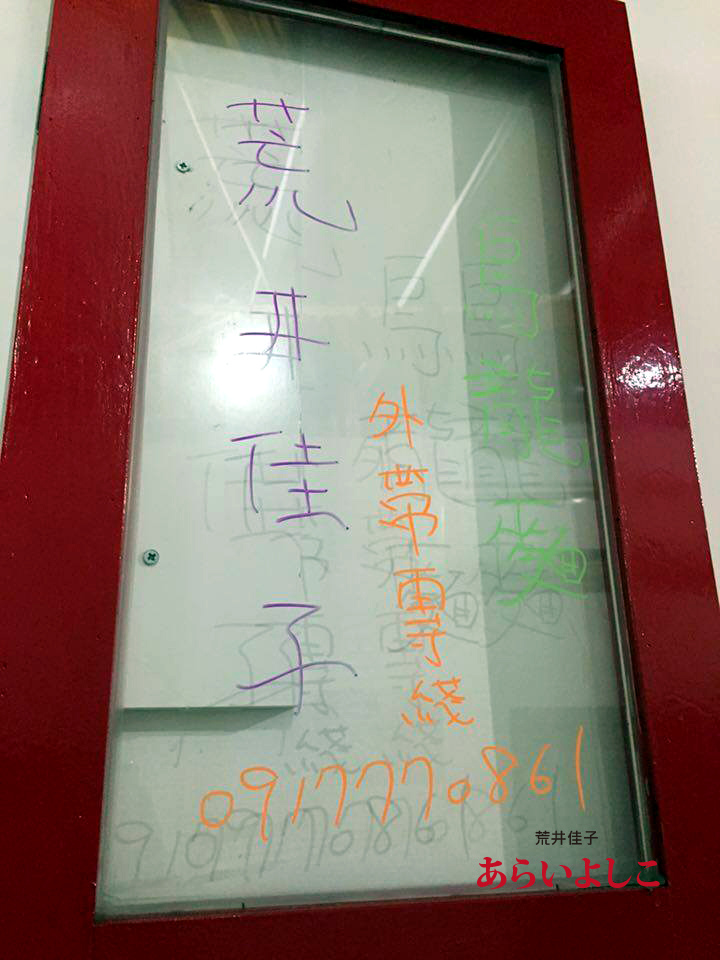 烏龍麵
外帶專綫
0917770861
荒井佳子
荒井佳子
あらいよしこ